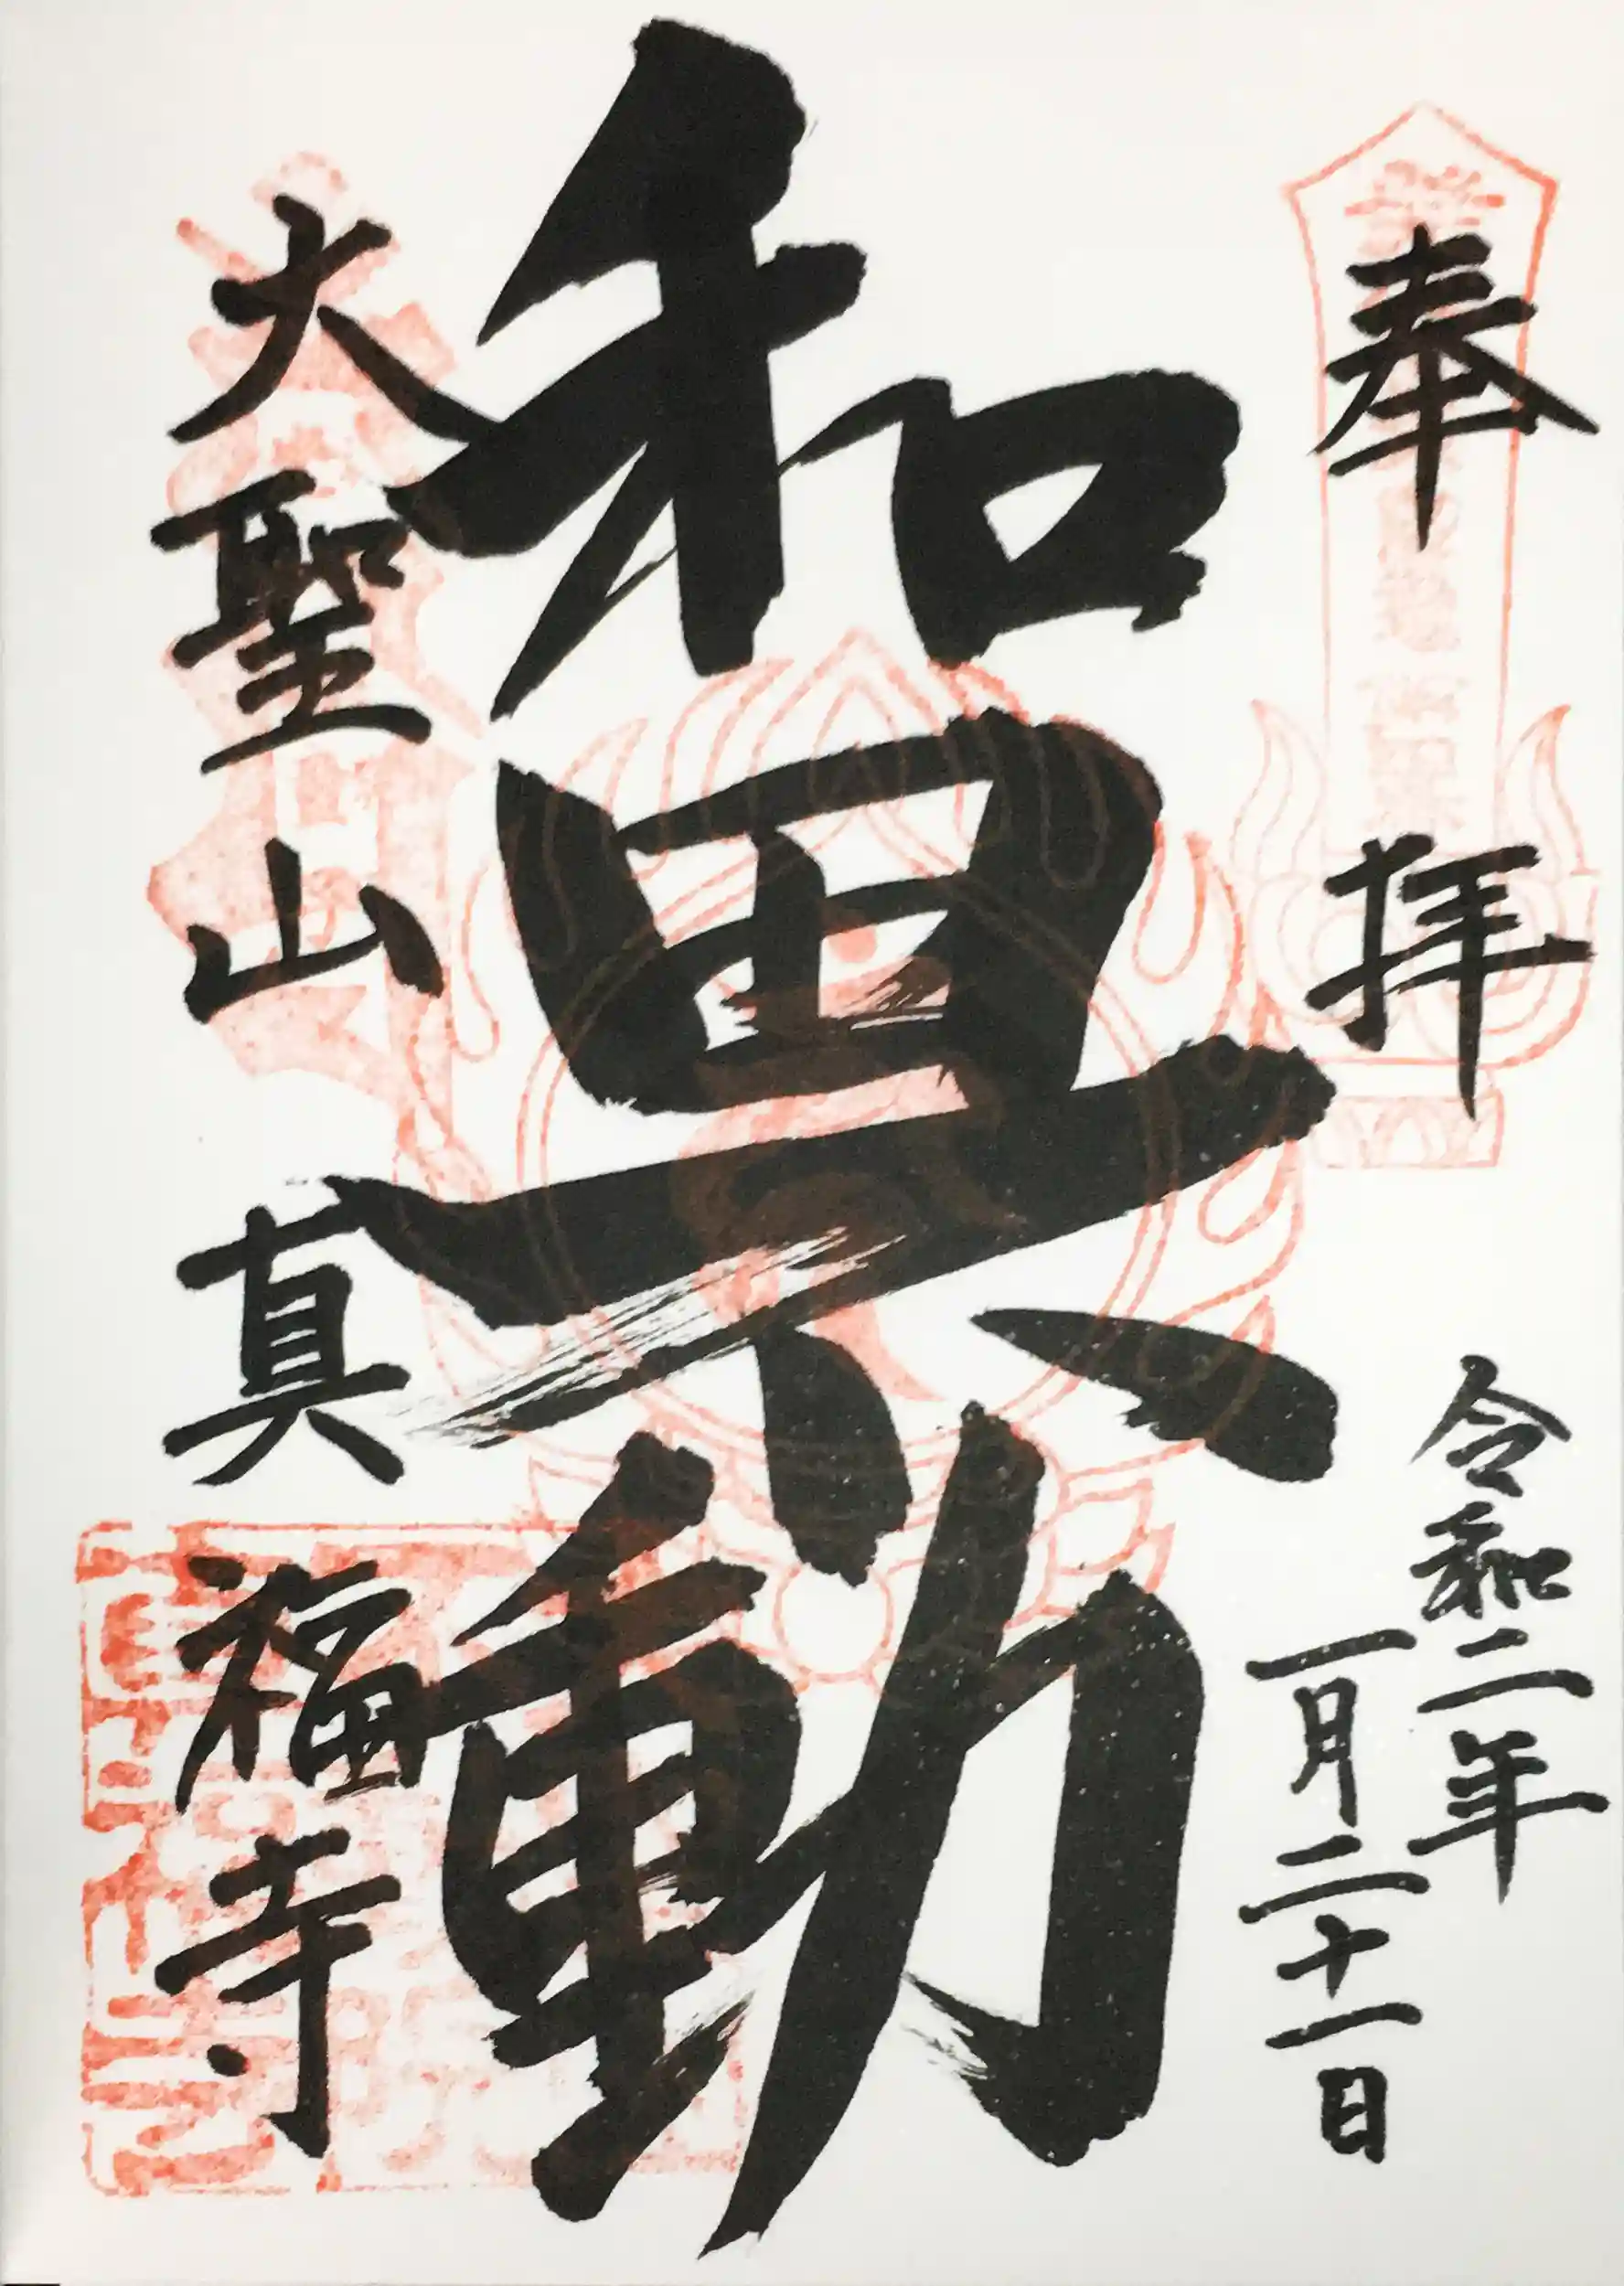 奉拝
令和二年
一月二十一日
和田不動
大聖山真福寺